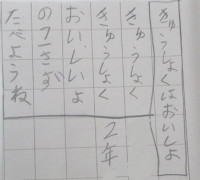 きゅうしょくはおいしよ
2年
きゅうしょく
きゅうしょく
おいしいよ
のこさず
たべようね